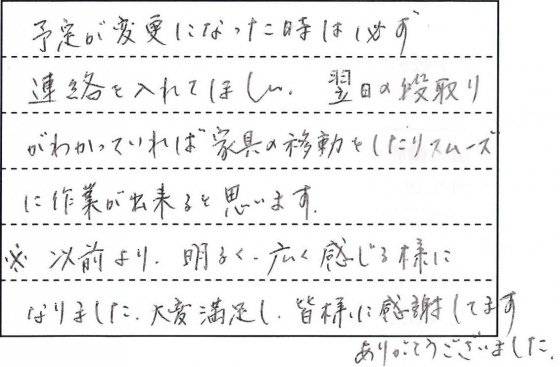 予定が変更になった時は必ず
連絡を入れてほしい。翌日の段取り
がわかっていれば家具の移動をしたりスムーズ
に作業が出来ると思います。
※ 以前より、明るく、広く感じる様に
なりました。大変満足し、皆様に感謝してます
ありがとうございました。